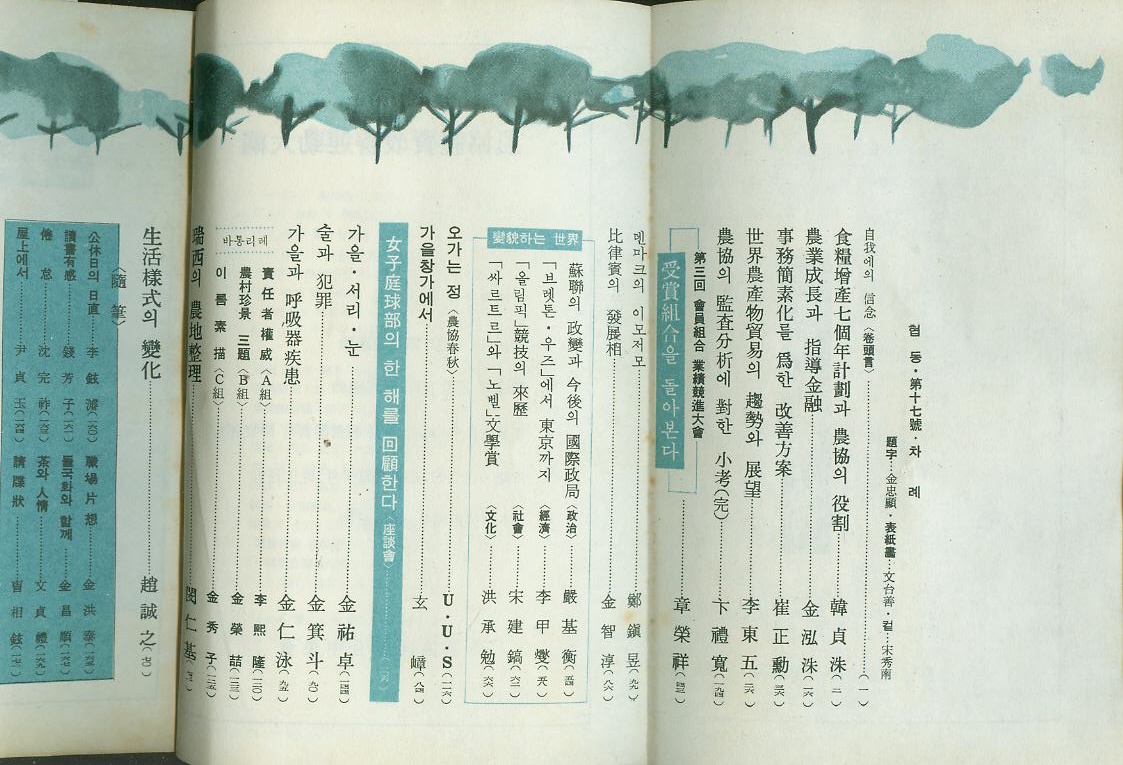 협동·第十七號·차례
題字…金忠顯·表紙畵…文台善·컽…宋秀南
自我에의 信念〈卷頭言〉…(一)
食糧增產七個年計劃과 農協의 役割…韓貞洙(二)
農業成長과 指導金融…金泓洙(一六)
事務簡素化를 爲한 改善方案…崔正勳(二六)
世界農產物貿易의 趨勢와 展望…李東五(三六)
農協의 監査分析에 對한 小考(完)…卞禮寬(一九四)
第三回 會員組合 業績競進大會
受賞組合을 돌아본다…章榮祥(四三)
덴마크의 이모저모…鄭鎭昱(七九)
比律賓의 發展相…金智淳(八六)
變貌하는 世界
蘇聯의 政變과 今後의 國際政局〈政治〉…嚴基衡(五四)
「브렛톤·우즈」에서 東京까지〈經濟〉…李甲燮(五八)
「올림픽」競技의 來歷〈社會〉…宋建鎬(六二)
「싸르트르」와 「노벨」文學賞〈文化〉…洪承勉(六六)
오가는 정〈農協春秋〉…U·U·S(一一六)
가을창가에서…玄嶂(八四)
女子庭球部의 한 해를 回顧한다〈座談會〉
가을·서리·눈…金祐卓(一四四)
술과 犯罪…金箕斗(九〇)
가을과 呼吸器疾患…金仁泳(九五)
바통리레
責任者權威〈A組〉…李熙隆(一二〇)
農村珍景 三題〈B組〉…金榮喆(一二三)
이름素描〈C組〉…金秀子(一二五)
瑞西의 農地整理…閔仁基
生活樣式의 變化…趙誠之(七〇)
〈隨筆〉
公休日의 日直…李鉉濬(一六〇)
職場片想…金洪泰(一六四)
讀書有感…錢芳子(一六一)
들국화와 함께…金昌順(一六七)
倦怠…沈完祚(一六三)
茶와 人情…文貞禮(一六九)
屋上에서…尹貞玉(一六四)
請牒狀…曺相鉉(一七一)